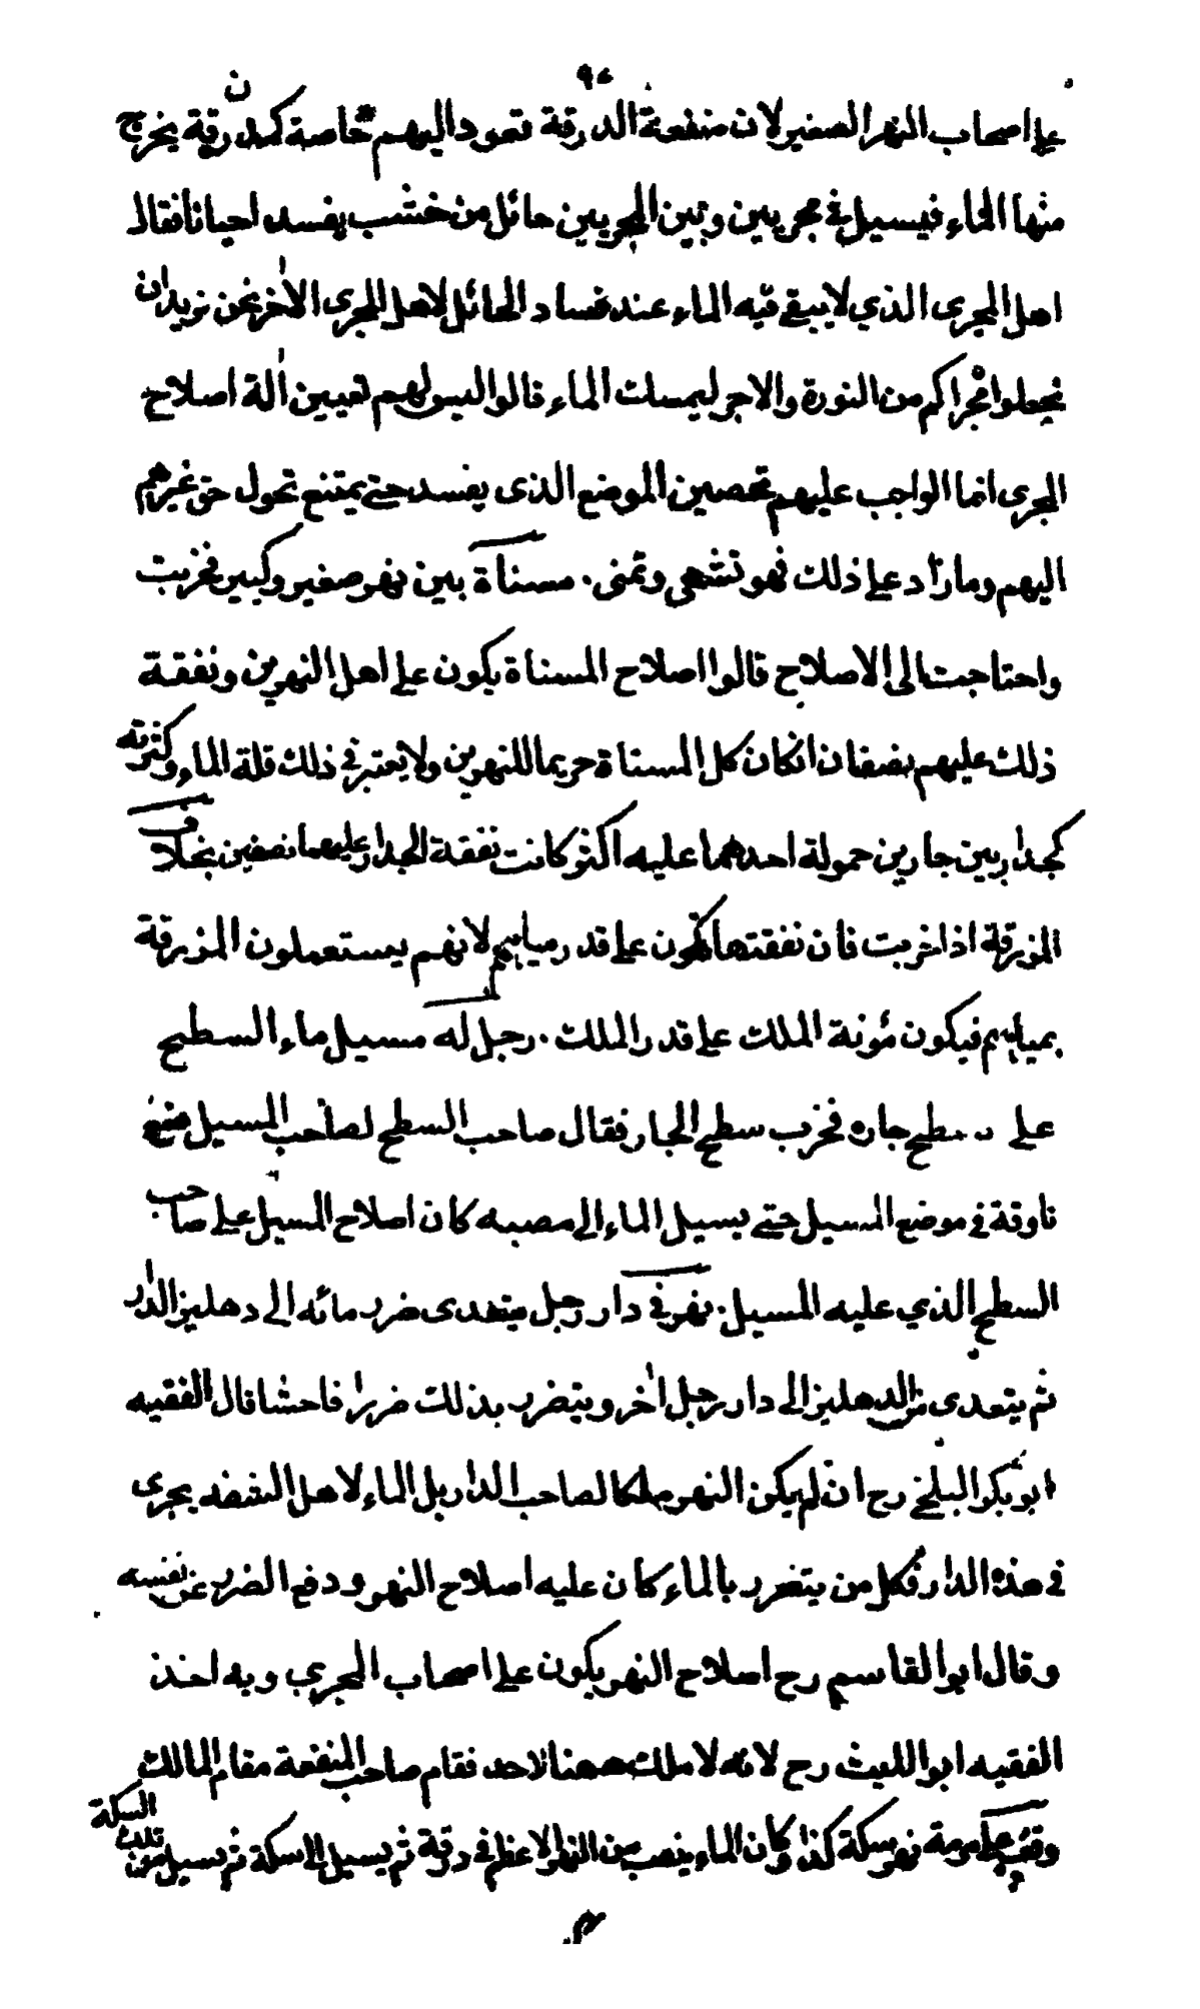 ٩٤
على اصحاب النهر الصغير لان منفعة الدرقة تعود اليهم خاصة كمدرقة يخرج
منها الماء فيسيل في مجريين وبين المجريين حائل من خشب يفسد احيانا فقال
اهل المجرى الذي لا يبقى فيه الماء عند فساد الحائل لاهل المجرى الاخر نحن نريد ان
تجعلوا مجراكم من النورة والاجر ليمسك الماء قالوا ليس لهم تعيين الة اصلاح
المجرى انما الواجب عليهم تحصين الموضع الذى يفسد حتى يمتنع تحول حق غيرهم
اليهم وما زاد على ذلك فهو تشهى وتمنى . مسناة بين نهر صغير وكبير فخربت
واحتاجت الى الاصلاح قالوا اصلاح المسناة يكون على اهل النهرين ونفقة
ذلك عليهم نصفان ان كان كل المسناة حريما للنهرين ولا يعتبر في ذلك قلة الماء وكثرته
كجدار بين جارين حمولة احدهما عليه اكثر كانت نفقة الجدار عليهما نصفين بخلاف
المزرقة اذا خربت فان نفقتها تكون على قدر مياههم لانهم يستعملون المزرقة
بمياههم فيكون مؤنة الملك على قدر الملك . رجل له مسيل ماء السطح
على سطح جاره فخرب سطح الجار فقال صاحب السطح لصاحب المسيل ضع
ناوقة في موضع المسيل حتى يسيل الماء الى مصبه كان اصلاح المسيل على صاحب
السطح الذي عليه المسيل . نهر في دار رجل يتعدى ضرر مائه الى دهليز الدار
ثم يتعدى من الدهليز الى دار رجل اخر ويتضرر بذلك ضررا فاحشا قال الفقيه
ابو بكر البلخي رح ان لم يكن النهر ملكا لصاحب الدار بل الماء لاهل الشفه يجرى
في هذه الدار فكل من يتضرر بالماء كان عليه اصلاح النهر ودفع الضرر عن نفسه
وقال ابو القاسم رح اصلاح النهر يكون على اصحاب المجرى وبه اخذ
الفقيه ابو الليث رح لانه لا ملك ههنا لاحد فقام صاحب المنفعة مقام المالك
وقف على مرمة نهر سكة كذا وكان الماء ينصب من النهر الاعظم في درقة ثم يسيل الى السكة ثم يسيل من تلك السكة